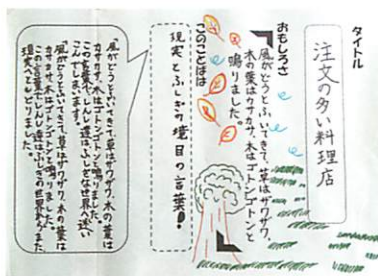 タイトル
注文の多い料理店
おもしろさ
「風がどうとふいてきて、草はザワザワ、
木の葉はカサカサ、木はゴトンゴトンと
鳴りました。」
このことばは
現実とふしぎの境目の言葉！
「風がどうとふいてきて、草はザワザワ、木の葉は
カサカサ、木はゴトンゴトンと鳴りました。」
この言葉で、しんし達はふしぎな世界へ迷い
こんでしまいます。
「風がどうとふいてきて、草はザワザワ、木の葉は
カサカサ、木はゴトンゴトンと鳴りました。」
この言葉で、しんし達はふしぎの世界からまた
現実へともどりました。